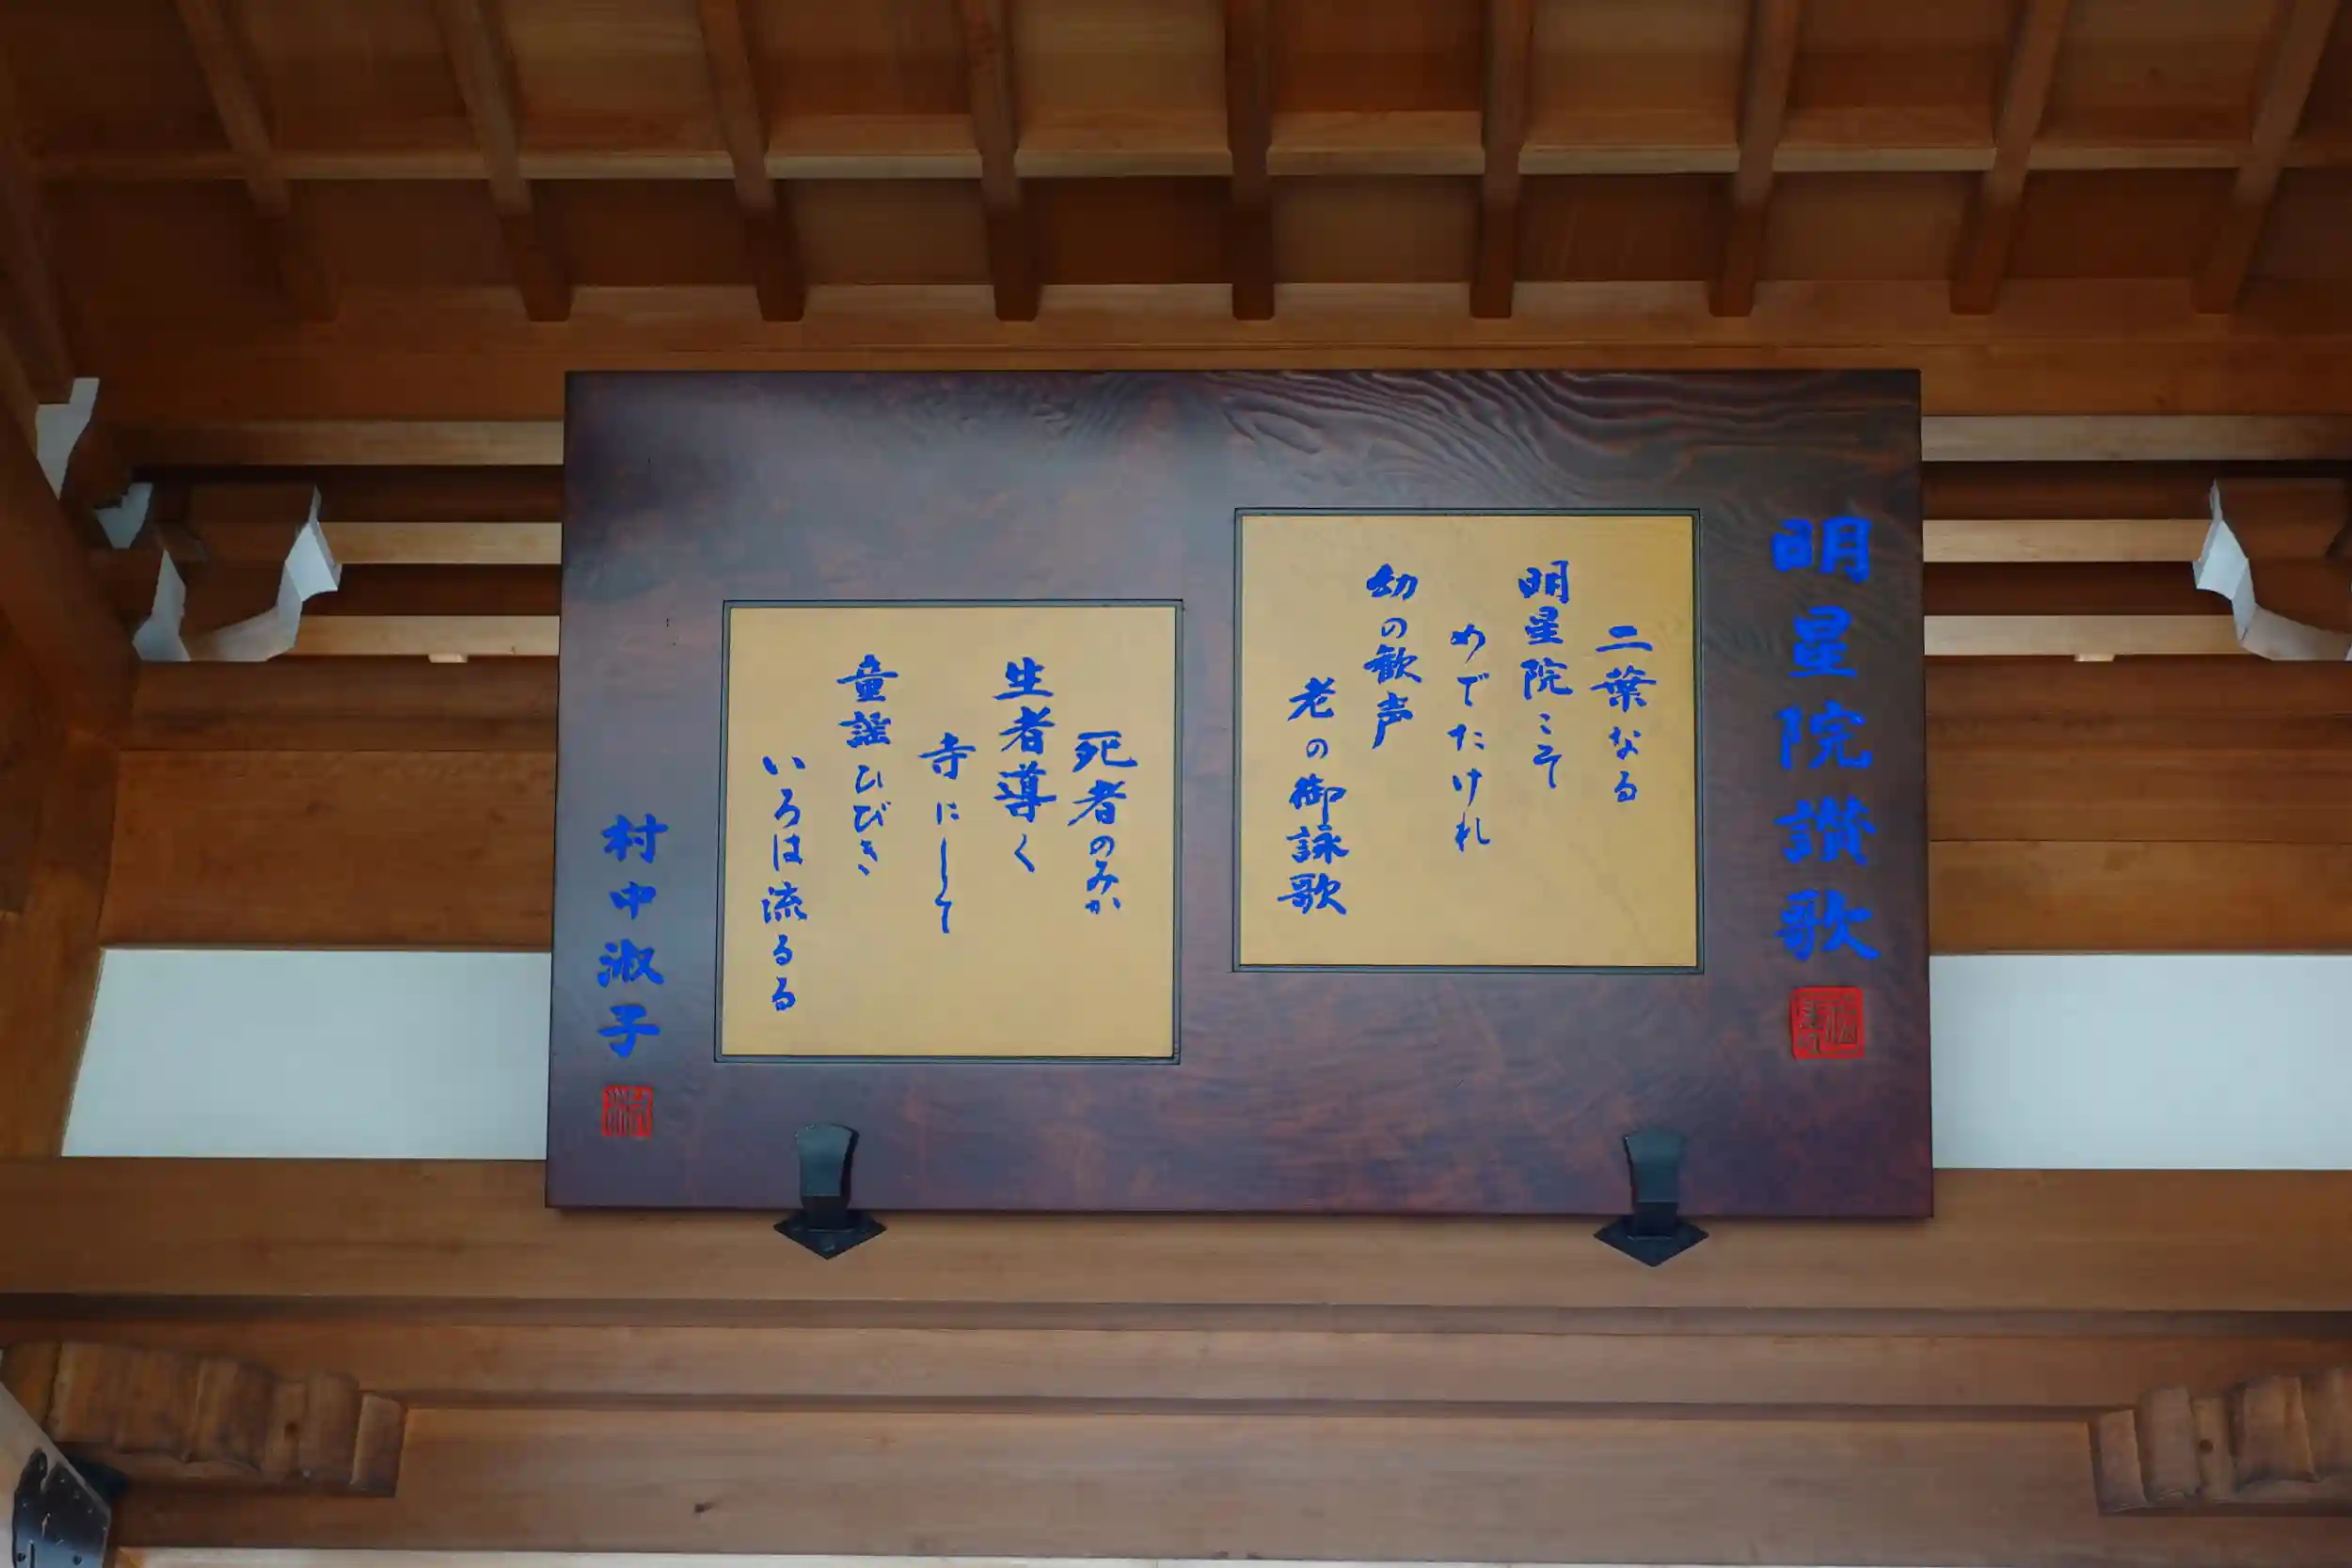 明星院讃歌
二葉なる
明星院こそ
めでたけれ
幼の歓声
老の御詠歌
死者のみか
生者導く
寺にして
童謡ひびき
いろは流るる
村中淑子